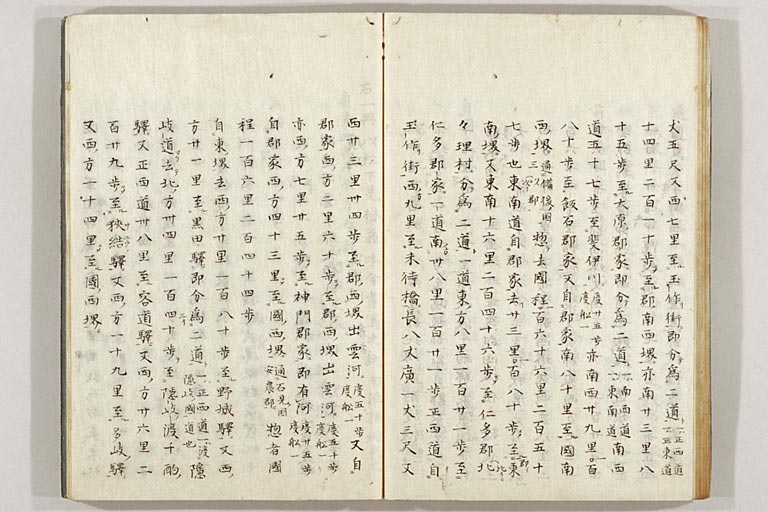 丈五尺又西七里至玉作街即分為二道一正西道一正東道
十四里二百一十步至郡南西堺亦南廿三里八
十五步至大原郡家即分為二道一南西道一東南道南西
道五十七步至斐伊川度廿五步度船一亦南西廿九里百
八十步至飯石郡家又自郡家南八十里至國南
西堺通備後國三次郡惣去國程百六十六里二百五十
七步也東南道自郡家去廿三里百八十步至東
南堺又東南十六里二百四十六步至仁多郡北
々理村分為二道一道東方八里一百廿一步至
仁多郡家一道南卅八里一百廿一步正西道自
玉作街西九里至未待橋長八丈廣一丈三尺又
西廿三里卅四步至郡西堺出雲河度五十步度船一又自
郡家西方二里六十步至郡西堺出雲河度五十步度船一
亦西方七里廿五步至神門郡家即有河度廿五步度船一
自郡家西方四十三里至國西堺通石見國安農郡惣者國
程一百六里二百四十四步
自東堺去西方廿里一百八十步至野城驛又西
方廿一里至黒田驛即分為二道一正西道一渡隠岐國道也隠
岐道去北方卅四里一百四十步至隠岐渡千酌
驛又正西道卅八里至宍道驛又西方廿六里二
百廿九步至狹結驛又西方一十九里至多岐驛
又西方一十四里至國西堺